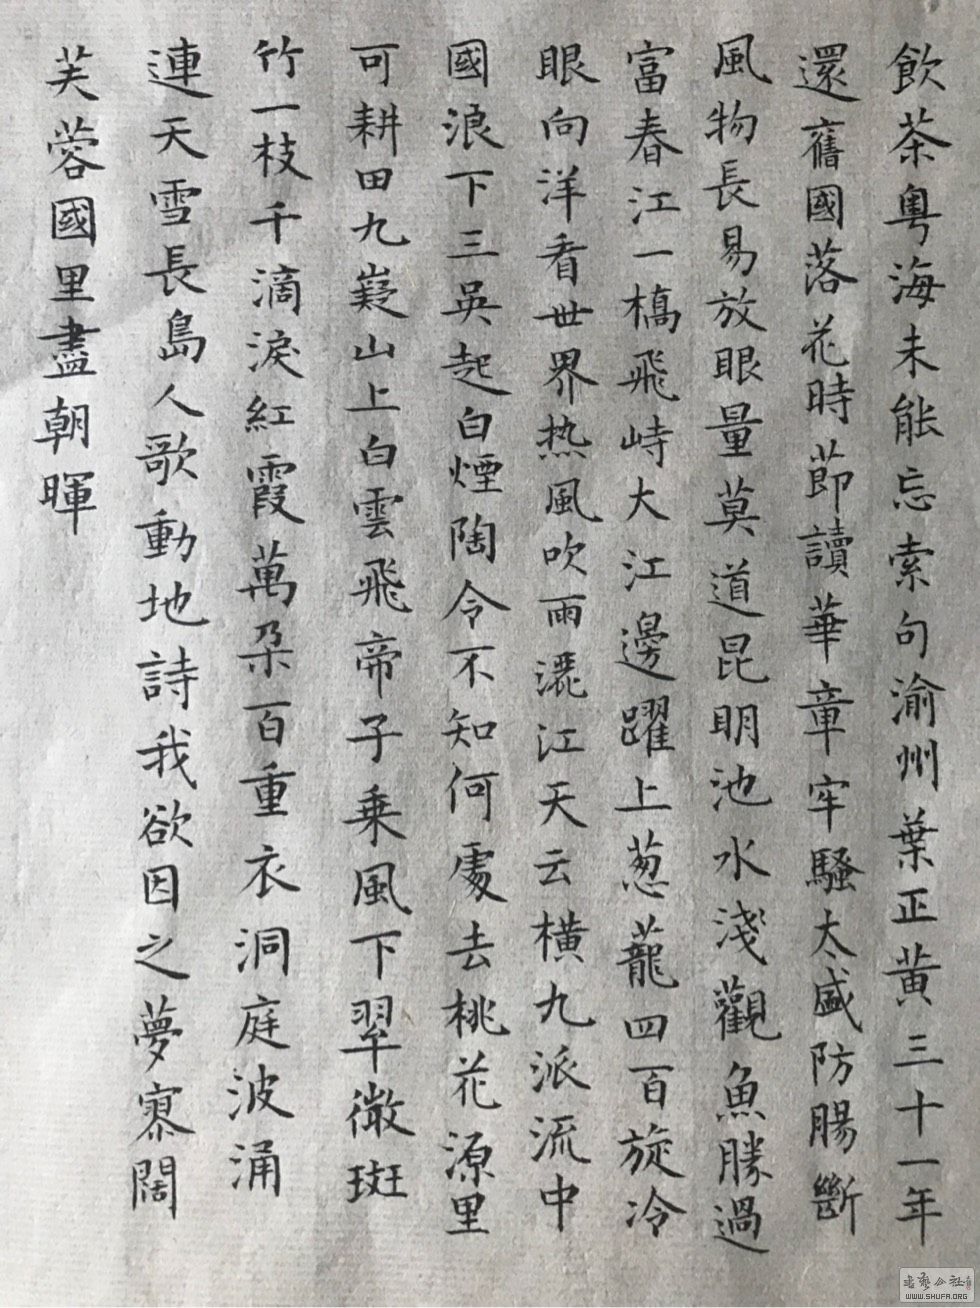 飲茶粤海未能忘索句渝州葉正黄三十一年
還舊國落花時節讀華章牢騷太盛防腸斷
風物長易放眼量莫道昆明池水淺觀魚勝過
富春江一槗飛峙大江邊躍上葱蘢四百旋冷
眼向洋看世界热風吹雨灑江天云横九派流中
國浪下三吳起白煙陶令不知何處去桃花源里
可耕田九嶷山上白雲飛帝子乘風下翠微斑
竹一枝千滴淚紅霞萬朵百重衣洞庭波涌
連天雪長島人歌動地詩我欲因之夢寥闊
芙蓉國里盡朝暉
WWW.SHUFA.ORG